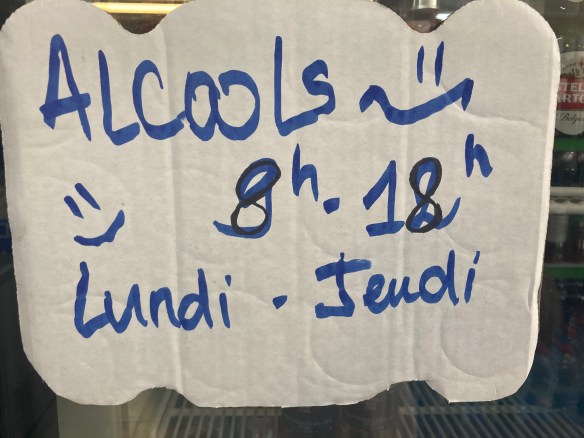 ALCOOLS
8h. 18h
Lundi - Jeudi